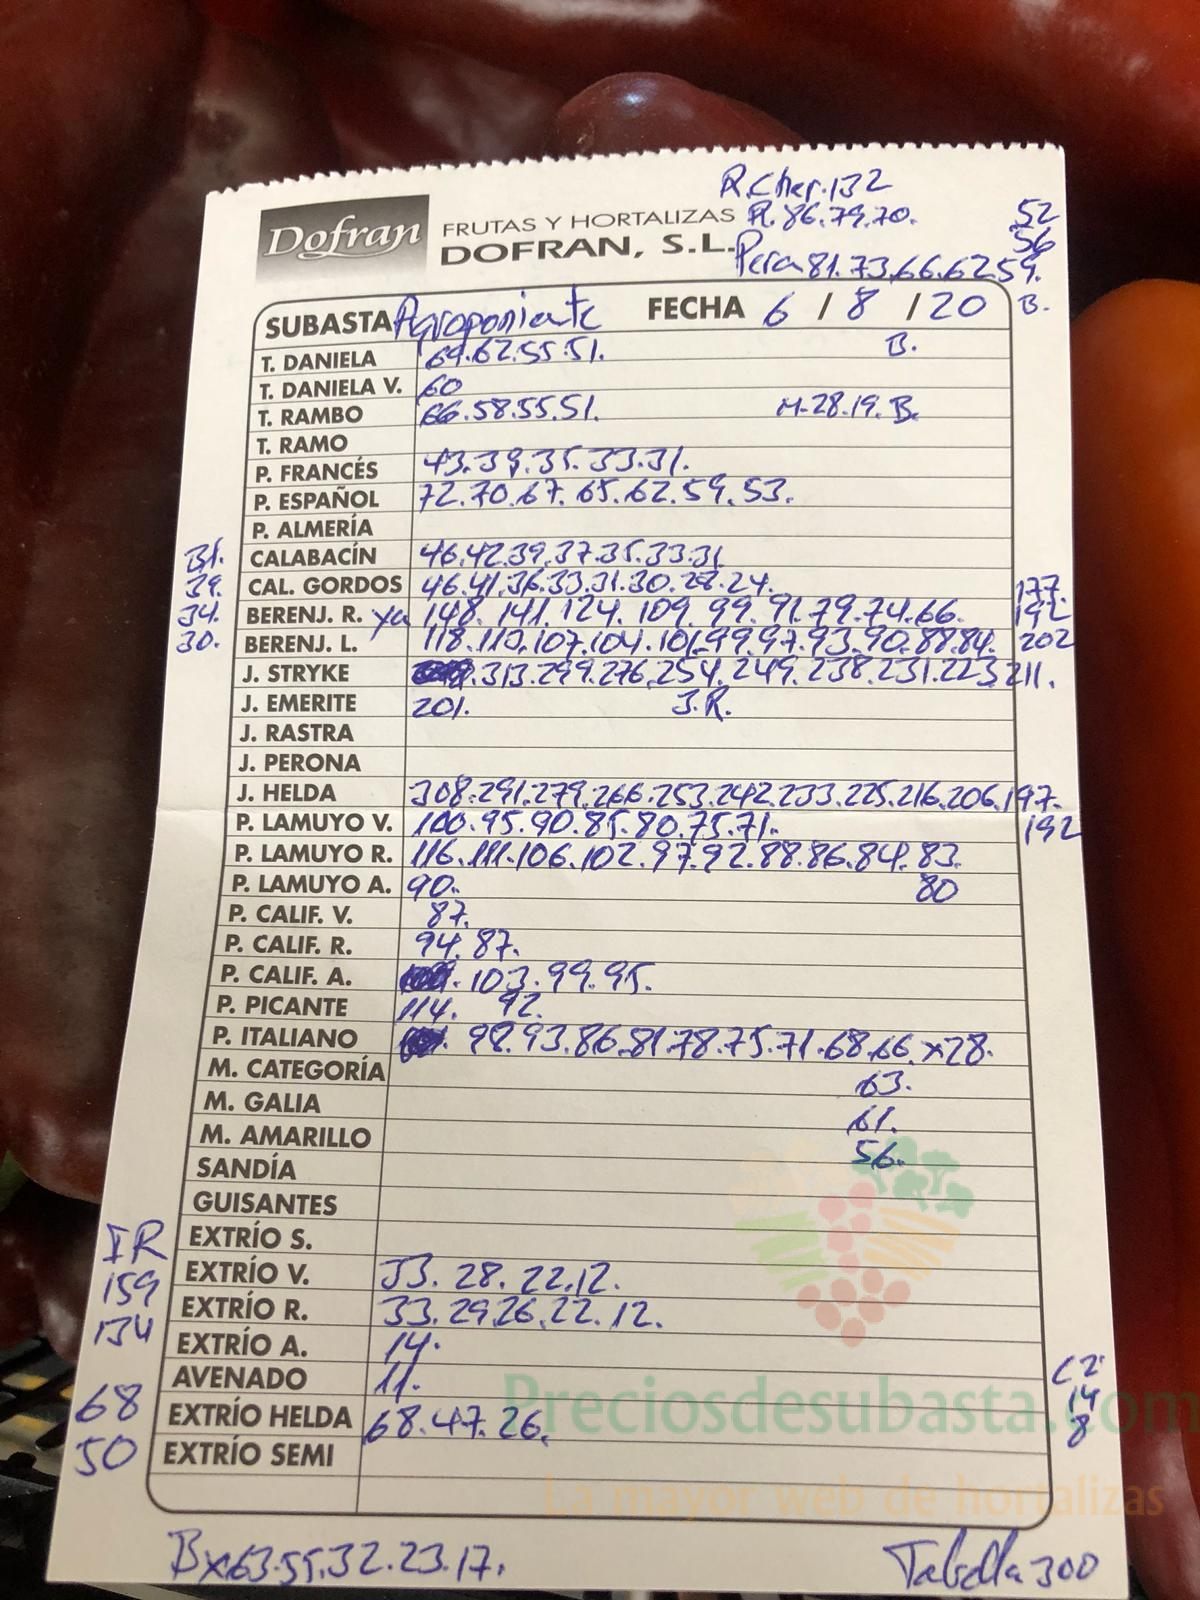 R.Cher.132
Dofran FRUTAS Y HORTALIZAS R. 86.79.70. 52
DOFRAN, S.L. 56
Pera 81.73.66.62 59.
SUBASTA Agroponiente FECHA 6 / 8 / 20 B.
T. DANIELA 69.62.55.51. B.
T. DANIELA V. 60
T. RAMBO 66.58.55.51. M-28.19.B.
T. RAMO
P. FRANCÉS 43.39.35.33.31.
P. ESPAÑOL 72.70.67.65.62.59.53.
P. ALMERÍA
31. CALABACÍN 46.42.39.37.35.33.31
39. CAL. GORDOS 46.41.36.33.31.30.28.24. 177.
34. BERENJ. R. xa 148.141.124.109.99.91.79.74.66. 192
30. BERENJ. L. 118.110.107.104.101.99.97.93.90.88.84. 202
J. STRYKE .313.299.276.254.249.238.231.223 211.
J. EMERITE 201. J.R.
J. RASTRA
J. PERONA
J. HELDA 308.291.279.266.253.242.233.225.216.206.197.
P. LAMUYO V. 100.95.90.85.80.75.71. 192
P. LAMUYO R. 116.111.106.102.97.92.88.86.84.83.
P. LAMUYO A. 90. 80
P. CALIF. V. 87.
P. CALIF. R. 94.87.
P. CALIF. A. . 103.99.95.
P. PICANTE 114. 92.
P. ITALIANO . 98.93.86.81.78.75.71.68.66. x28.
M. CATEGORÍA 63.
M. GALIA 61.
M. AMARILLO 56.
SANDÍA
GUISANTES
EXTRÍO S.
IR EXTRÍO V. 33. 28. 22.12.
159 EXTRÍO R. 33.29.26.22.12.
134 EXTRÍO A. 14.
AVENADO 11. C2
68 EXTRÍO HELDA 68.47.26. 14
50 EXTRÍO SEMI 8
Preciosdesubasta.com
La mayor web de hortalizas
Bx63.55.32.23.17. Tabella 300